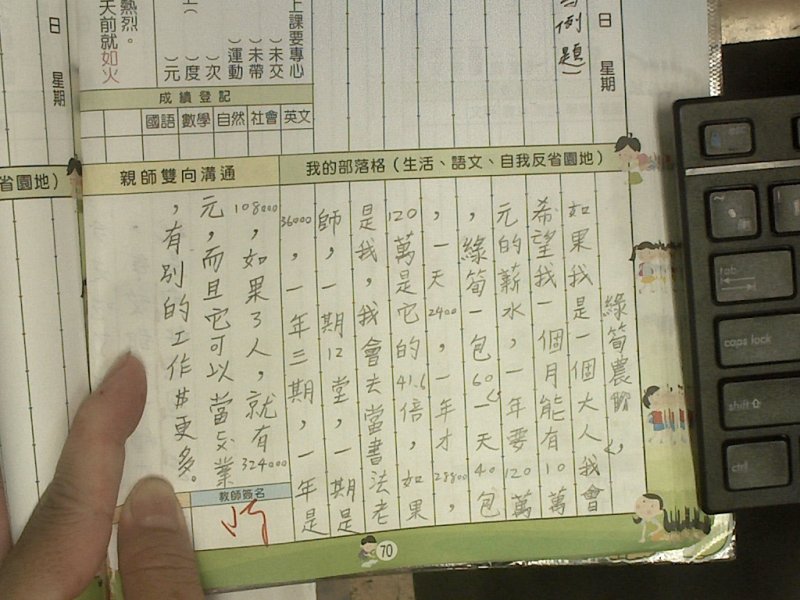 為例題)
日 星期
日 星期
上課要專心
)未交
)未帶
)運動
)次
)度
)元
熱烈。
天前就如火
成績登記
國語 數學 自然 社會 英文
省園地)
親師雙向溝通
我的部落格(生活、語文、自我反省園地)
綠筍農
如果我是一個大人我會
希望我一個月能有10萬
元的薪水,一年要120萬
,綠筍一包60一天40包
,一天2400,一年才28800,
120萬是它的41.6倍,如果
是我,我會去當書法老
師,一期12堂,一期是
36000,一年三期,一年是
108000,如果3人,就有324000
元,而且它可以當交業
,有別的工作井更多。
教師簽名
70
tab
caps lock
shift
ctrl